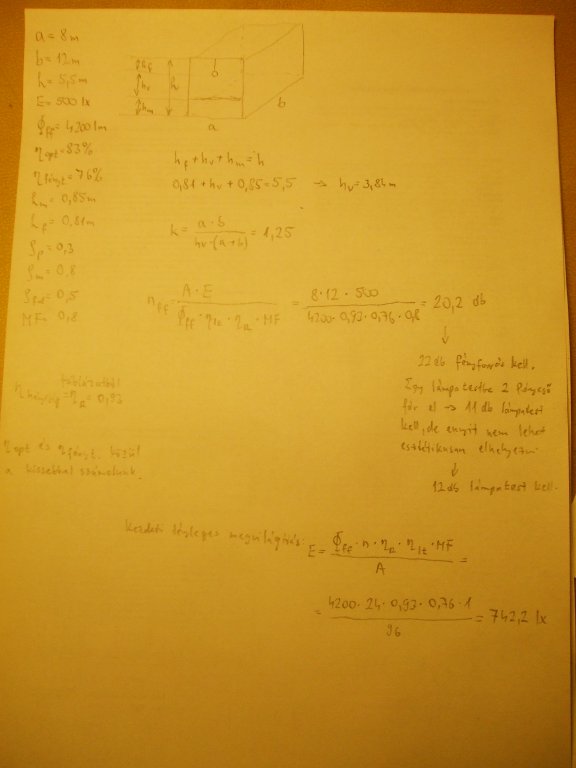 a = 8m
b = 12m
h = 5,5m
E = 500 lx
Φff = 4200 lm
ηopt = 83%
ηfényt = 76%
hm = 0,85m
hf = 0,81m
ρp = 0,3
ρm = 0,8
ρfal = 0,5
MF = 0,8
hf
hv
hm
h
a
b
hf + hv + hm = h
0,81 + hv + 0,85 = 5,5 → hv = 3,84m
k = a · b / hv · (a+b) = 1,25
nff = A · E / Φff · ηlt · ηR · MF = 8 · 12 · 500 / 4200 · 0,93 · 0,76 · 0,8 = 20,2 db
↓
22 db fényforrás kell.
Egy lámpatestbe 2 fénycső
fér el → 11 db lámpatest
kell, de ennyit nem lehet
esztétikusan elhelyezni.
↓
12 db lámpatest kell.
táblázatból
ηhelyiség = ηR = 0,93
ηopt és ηfényt. közül
a kisebbel számolunk.
kezdeti tényleges megvilágítás:
E = Φff · n · ηR · ηlt · MF / A =
= 4200 · 24 · 0,93 · 0,76 · 1 / 96 = 742,2 lx